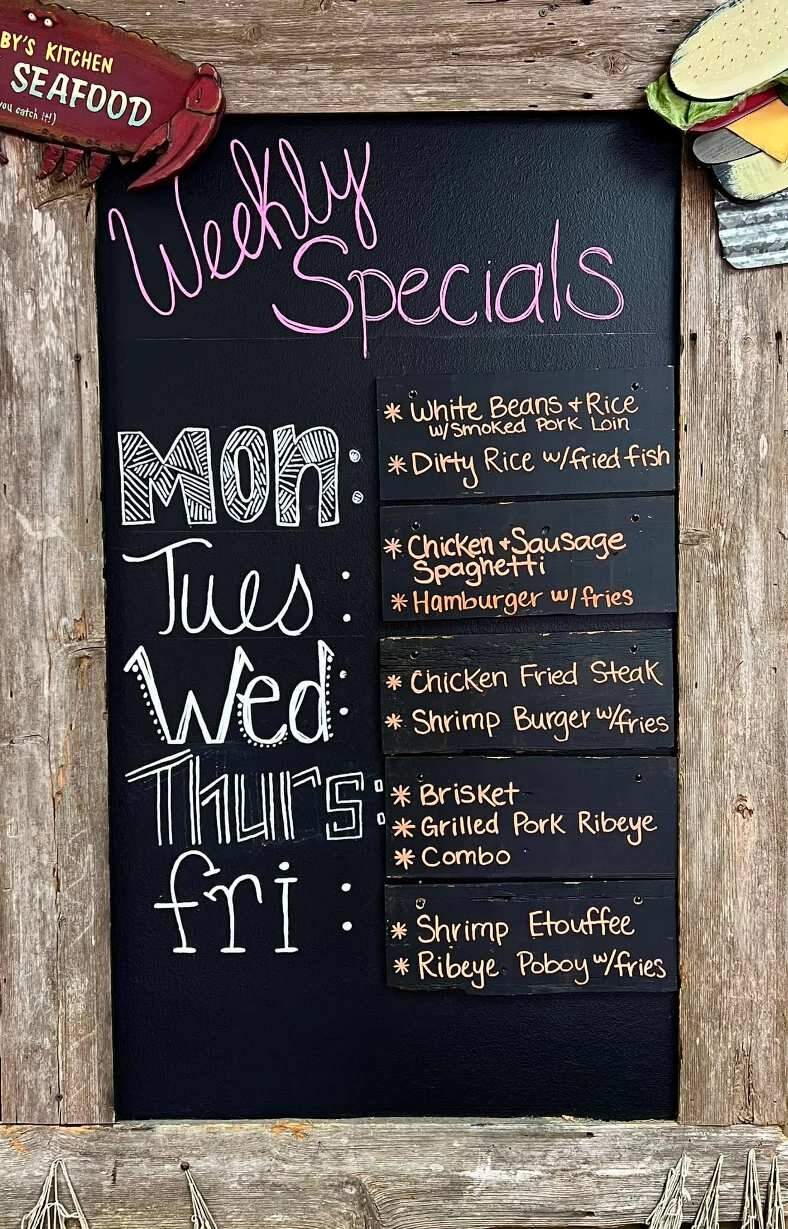 BY'S KITCHEN
SEAFOOD
you catch it!)
Weekly
Specials
Mon:
* White Beans + Rice
w/Smoked Pork Loin
* Dirty Rice w/fried fish
Tues:
* Chicken + Sausage
Spaghetti
* Hamburger w/fries
Wed:
* Chicken Fried Steak
* Shrimp Burger w/fries
Thurs:
* Brisket
* Grilled Pork Ribeye
* Combo
fri:
* Shrimp Etouffee
* Ribeye Poboy w/fries